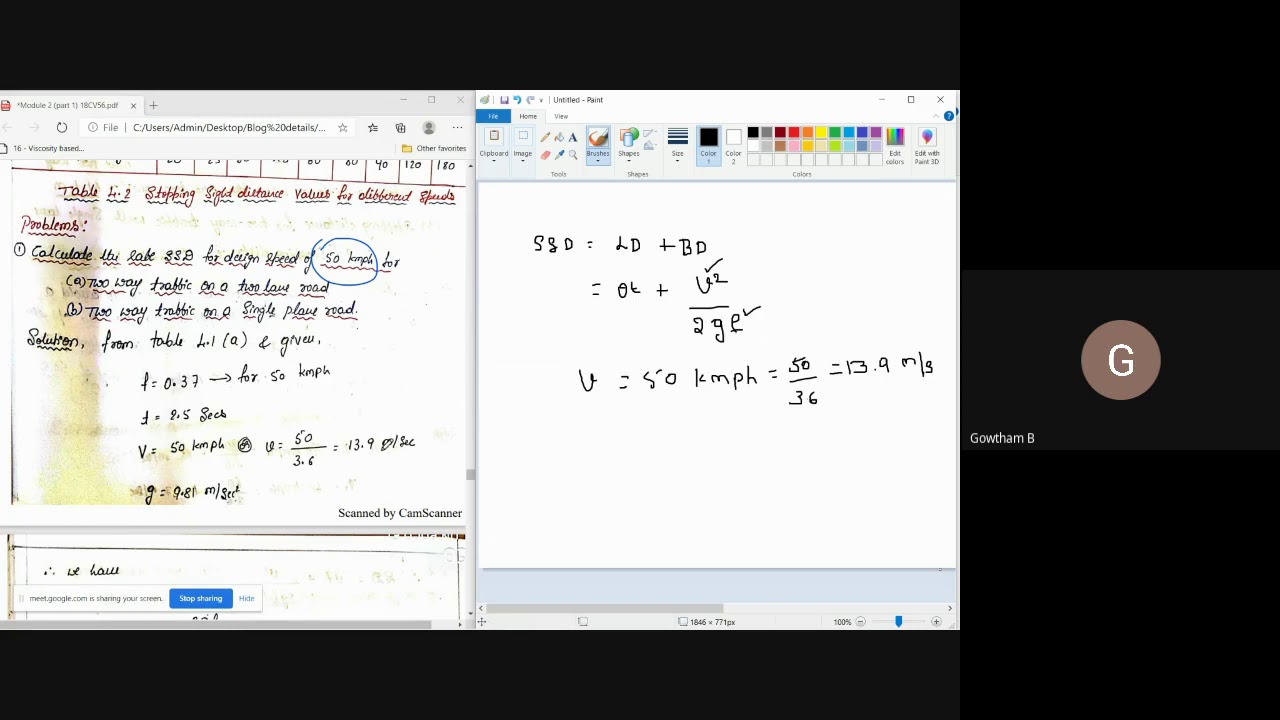 *Module 2 (part 1) 18CV56.pdf
File C:/Users/Admin/Desktop/Blog%20details/...
16 - Viscosity based... Other favorites
40 120 180
Table 4.2 Stopping Sight distance Values for different Speeds
Problems:
① Calculate the safe SSD for design speed of 50 kmph for
(a) Two way traffic on a two lane road
(b) Two way traffic on a Single plane road.
Solution, from table 4.1 (a) & given,
f = 0.37 → for 50 kmph
t = 2.5 Secs
V = 50 kmph v = 50/3.6 = 13.9 /sec
g = 9.81 m/sec²
Scanned by CamScanner
∴ we have
meet.google.com is sharing your screen. Stop sharing Hide
Untitled - Paint
File Home View
Clipboard Image Tools Brushes Shapes Size Color 1 Color 2 Edit colors Edit with Paint 3D
Shapes Colors
SSD = LD + BD
= vt + v²/2gf
v = 50 kmph = 50/36 = 13.9 m/s
1846 × 771px 100%
G
Gowtham B